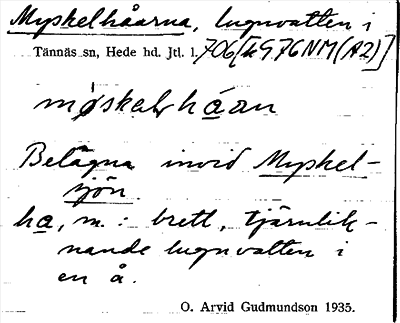 Myskelhåarna, lugnvatten i
Tännäs sn, Hede hd. Jtl. l. 706 [k976NM(A2)]
møskalhåan
Belägna invid Myskel-
sjön.
ha, m.: brett, tjärnlik-
nande lugnvatten i
en å.
O. Arvid Gudmundson 1935.